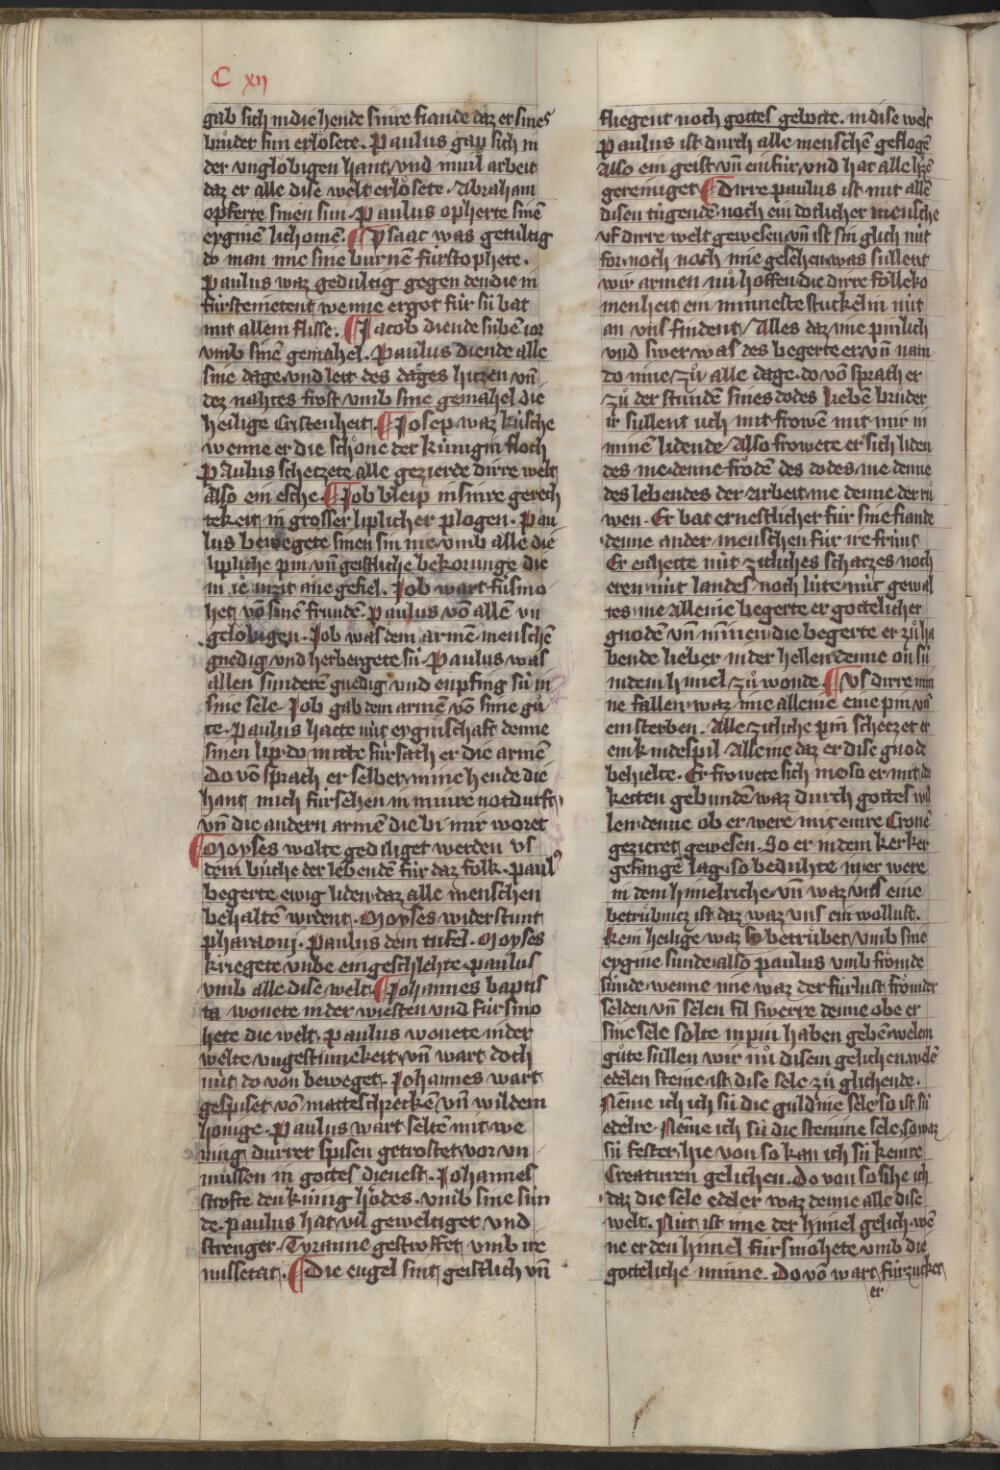 C xij
gab sich in die hende sinre fiande daz er sines
brůder sun erlosete. Paulus gap sich in
der unglöbigen hant, und muil arbeit
daz er alle dise welt erlösete. Abraham
opferte sinen sun. Paulus opherte sinē
eyginē lichomē. Ysaac was gedultig
do man nie sine burnē fürstophete.
Paulus waz gedultig gegen den die in
fürsteinetent wenne er got für sü bat
mit allem flisse. Jacob diende sübē ior
umb sinē gemahel. Paulus diende alle
sine dage, und leit des dages hitzen vn̄
dez nahtes frost umb sine gemahel die
heilige Cristenheit. Josep waz küsche
wenne er die schöne der künigin floch
Paulus schetzete alle gezierde dirre welt
also ein esche. Job bleip in sinre gerech
tekeit, in grosser liplicher plogen. Pau
lus bewegete sinen sin nie umb alle die
lipliche pin vn̄ geistliche bekorunge die
in ie anegefiel. Job wart fúsmo
het, vō sinē frundē. Paulus vō allē vn
gelöbigen. Job was dem armē menschē
gnedig und herbergete sü. Paulus was
allen sunderē gnedig und enpfing sü in
sine sele. Job gab dem armē vō sime gů
te. Paulus hatte nüt eyginschaft denne
sinen lip, do mitte fürsach er die armē
Do vō sprach er selber, mine hende die
hant mich fürsehen in minre notdurft,
vn̄ die andern armē die bi mir woret
Moyses wolte gediliget werden us
dem bůche der lebendē für daz folk. Paulꝰ
begerte ewig liden, daz alle menschen
behaltē wrdent. Moyses widerstunt
pharaoni. Paulus dem tufel. Moyses
kriegete umbe ein geschlehte. paulus
umb alle dise welt. Johannes baptis
ta wonete in der wiesten und fürsmo
hete die welt. Paulus wonete in der
welte ungestimmekeit, vn̄ wart doch
nüt do von beweget. Johannes wart
gespiset vō matteschreckē vn̄ wildem
honige. Paulus wart seltē mit we
nig durrer spisen getrostet, vor un
můssen in gottes dienest. Johannes
strofte den künig hōdes. umb sine sün
de. paulus hat vil geweltiger und
strenger Tyranne gestroffet, umb ire
missetat. Die engel sint geistlich vn̄
fliegent noch gottes gebotte. in dise welt
Paulus ist durch alle menschē geflogē
Also ein geist vn̄ ein für, und hat alle h'zē
gereiniget. Dirre paulus ist mit allē
disen tugendē noch ein dotlicher mensche
uf dirre welt gewesen, vn̄ ist sin glich nüt
for. noch noch nie gesehen. was sullent
wir armen nů hoffen, die dirre folleko
menheit ein minneste stuckelin nüt
an uns findent, Alles daz nie pinlich
und swer was des begerte er vn̄ nam
do nine, zů alle dage. do vō sprach er
zů der stundē sines dodes lieben brüder
ir sullent üch mit frowē mit mir in
minē lidende. Also frowete er sich liden
des me denne frödē des dodes, me denne
des lebendes der arbeit, me denne der rů
wen. Er bat ernestlicher für sine fiande
denne ander menschen für ire frünt
Er enhette nüt zitliches schatzes noch
eren nüt landes noch lüte nüt gewal
tes, me alleine begerte er gottelicher
gnoden vn̄ minnen, die begerte er zů ha
bende lieber in der hellen denne on sü
in dem himel zů wonde. Vs dirre min
ne fallen, waz nie alleine eine pin vn̄
ein sterben. Alle zitliche pin schetzet er
ein kindespil. Alleine daz er dise gnode
behielte. Er frowete sich me so er mit dē
ketten gebundē waz durch gottes wil
len, denne ob er were mit einre Cronē
gezieret, gewesen. So er in dem kerker
gefangē lag, so beduhte in er were
in dem himelriche, vn̄ waz uns eine
betrübnüz ist daz waz uns ein wollust.
Kein heilige waz so betrübet, umb sine
eygine sunde also paulus umb frömde
sünde. wenne nie waz der fürlust frömder
selden vn̄ selen fil swerre denne obe er
sine sele solte in pin haben gebē. welem
gůte süllen wir nů disem gelichen, welē
edelen steine ist dise sele zů glichende.
Nēme ich ich sü die guldine sele so ist sü
edelre. Nēme ich sü die steinine sele, so waz
sü fester, hie von so kan ich sü keinre
Creaturen gelichen. Do von so sihe ich
daz die sele edeler waz denne alle dise
welt. Nüt ist nie der himel gelich, wē
ne er den himel fürsmohete umb die
gotteliche minne. Do vō wart fürzucket,
er